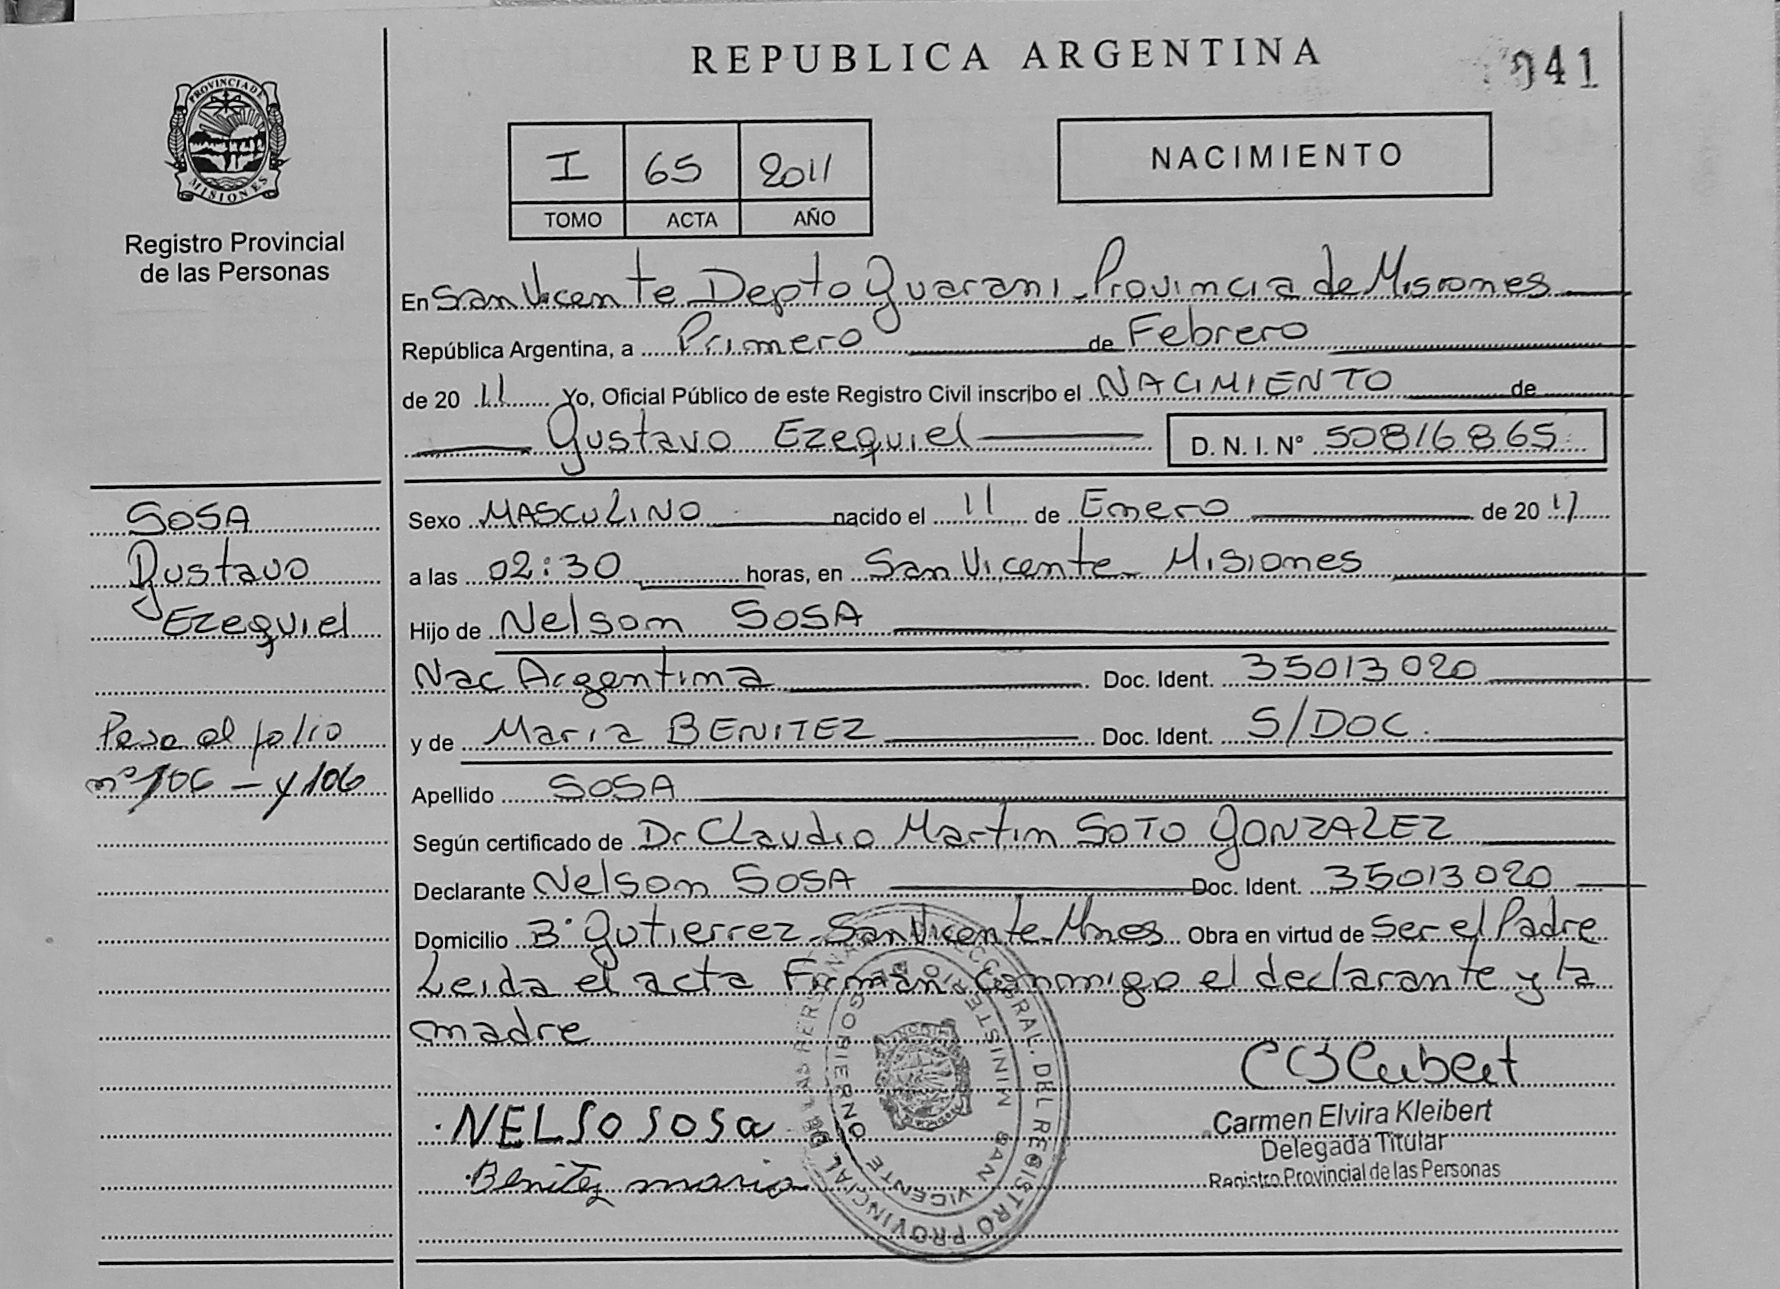 REPUBLICA ARGENTINA
041
PROVINCIA DE MISIONES
Registro Provincial
de las Personas
I 65 2011
TOMO ACTA AÑO
NACIMIENTO
En San Vicente Depto Guarani - Provincia de Misiones
República Argentina, a Primero de Febrero
de 20 11 Yo, Oficial Público de este Registro Civil inscribo el NACIMIENTO de
Gustavo Ezequiel D.N.I.Nº 50816865
SOSA
Gustavo
Ezequiel
Pasa al folio
nº 106 - y 106
Sexo MASCULINO nacido el 11 de Enero de 20 11
a las 02:30 horas, en San Vicente - Misiones
Hijo de Nelson SOSA
Nac Argentina Doc. Ident. 35013020
y de Maria BENITEZ Doc. Ident. S/DOC.
Apellido SOSA
Según certificado de Dr Claudio Martin SOTO GONZALEZ
Declarante Nelson SOSA Doc. Ident. 35013020
Domicilio Bº Gutierrez - San Vicente - Mnes Obra en virtud de Ser el Padre
Leida el acta Firman conmigo el declarante y la
madre
NELSO SOSA
Benitez maria
Carmen Elvira Kleibert
Delegada Titular
Registro Provincial de las Personas
MINISTERIO DE GOBIERNO
SAN VICENTE
GRAL. DEL REGISTRO PROVINCIAL DE LAS PERSONAS